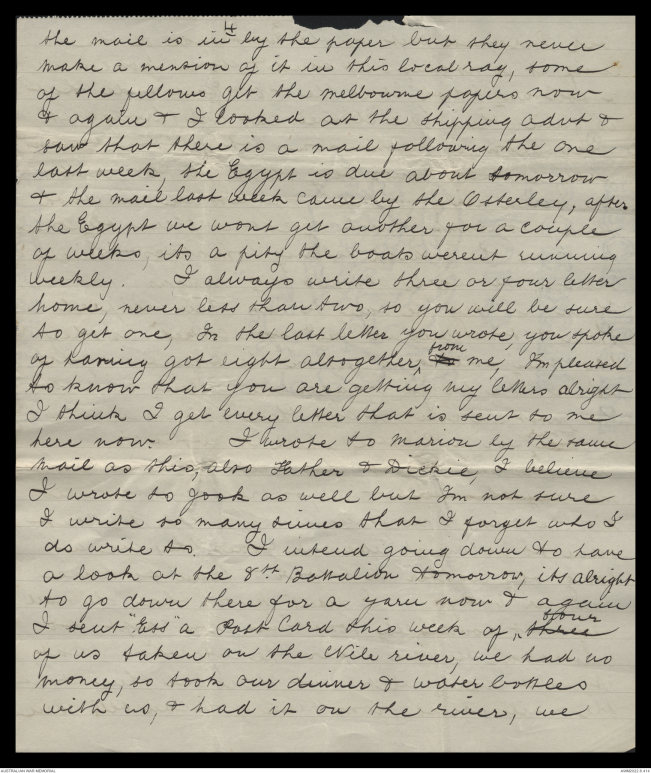 the mail is in 4 by the paper but they never
make a mention of it in this local rag, some
of the fellows get the melbourne papers now
& again & I looked at the shipping advt &
saw that there is a mail following the one
last week, the Egypt is due about tomorrow
& the mail last week came by the Osterley, after
the Egypt we wont get another for a couple
of weeks, its a pity the boats werent running
weekly. I always write three or four letter
home, never less than two, so you will be sure
to get one, In the last letter you wrote, you spoke
of having got eight altogether, from me, I'm pleased
to know that you are getting my letters alright
I think I get every letter that is sent to me
here now. I wrote to Marion by the same
mail as this, also Father & Dickie, I believe
I wrote to Jook as well but I'm not sure
I write so many times that I forget who I
do write to. I intend going down to have
a look at the 8th Battalion tomorrow, its alright
to go down there for a yarn now & again
I sent "Ess" a Post Card this week of, three four
of us taken on the Nile river, we had no
money, so took our dinner & water bottles
with us, & had it on the river, we
AUSTRALIAN WAR MEMORIAL